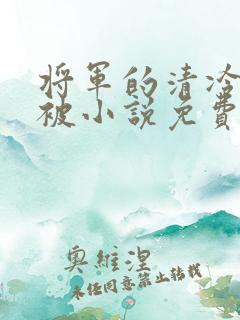 将軍的清冷
被小說免費
奧維涅
未經同意禁止轉載